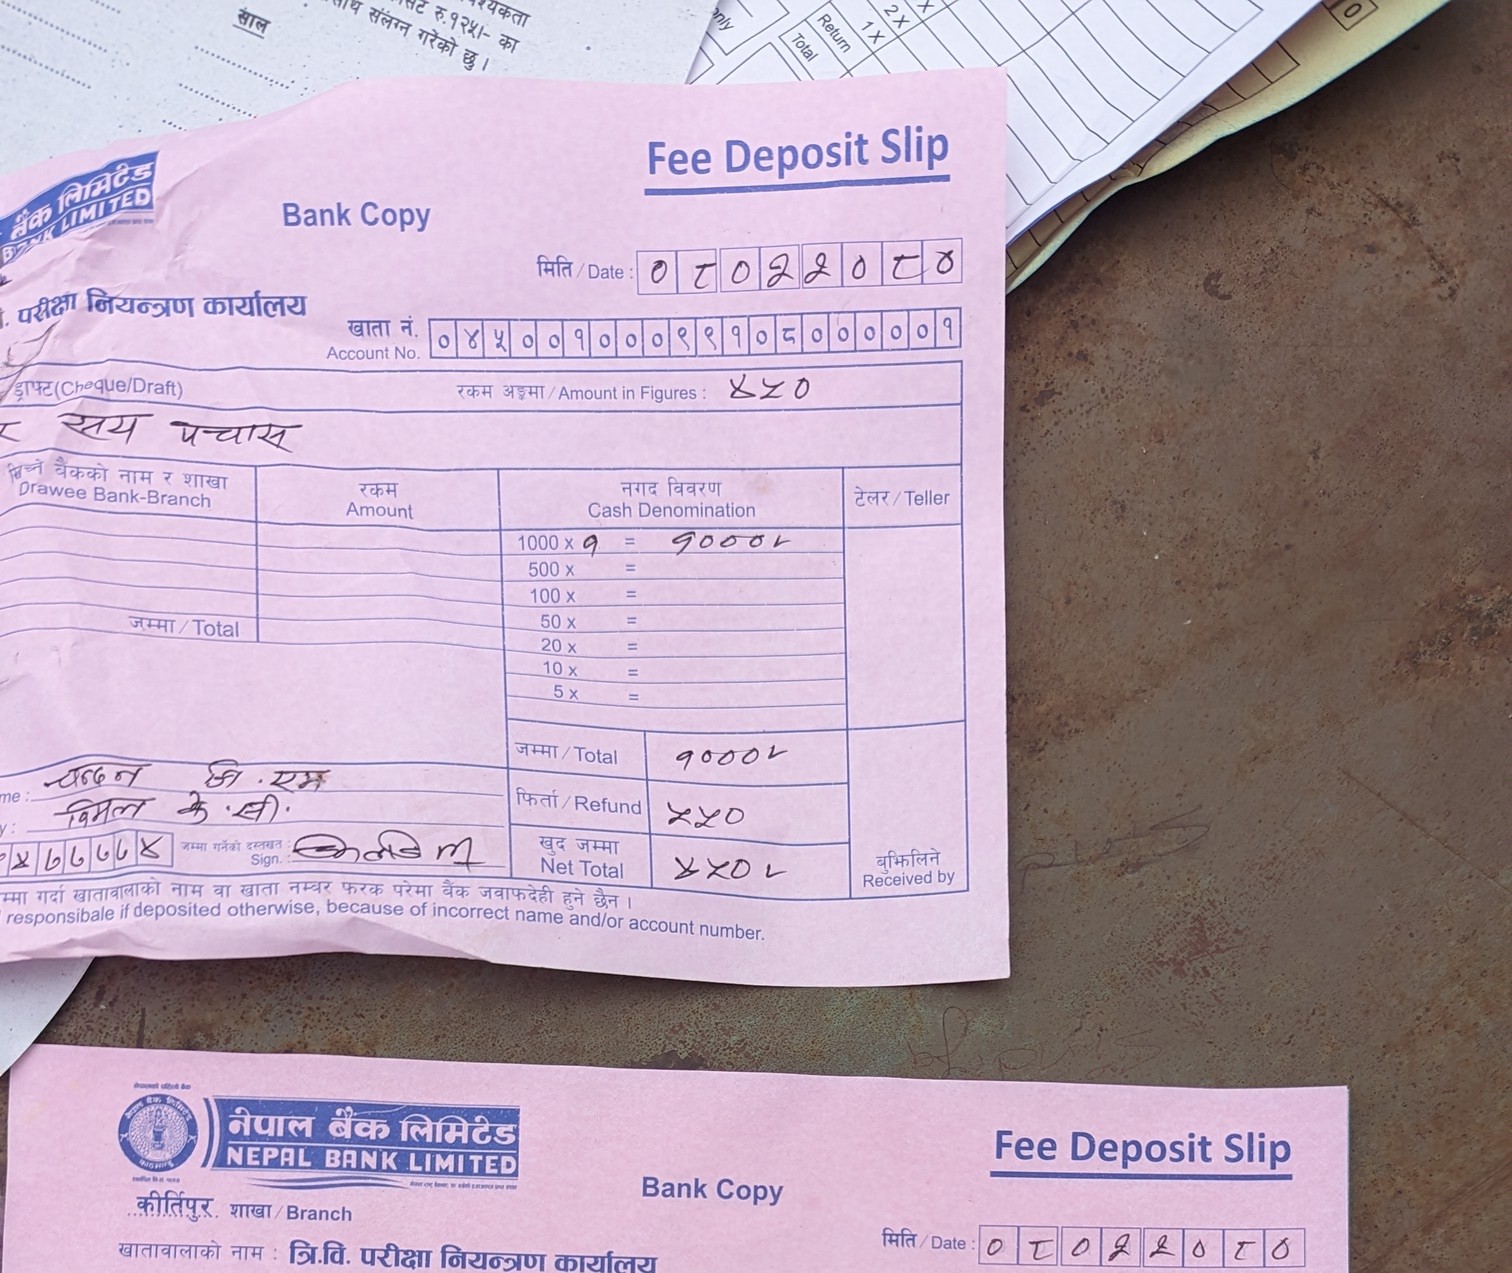 साल
रु.१२५।- का
साथ संलग्न गरेको छु ।
only
Return
Total
2 X
1 X
0
बैंक लिमिटेड
BANK LIMITED
Fee Deposit Slip
Bank Copy
मिति / Date : ० ८ ० २ २ ० ८ ०
परीक्षा नियन्त्रण कार्यालय
खाता नं.
Account No. ० ४ ५ ० ० १ ० ० ० ९ ९ १ ० ८ ० ० ० ० ० १
ड्राफ्ट(Cheque/Draft)
रकम अङ्कमा / Amount in Figures : ४५०
सय पचास
बैंकको नाम र शाखा
Drawee Bank-Branch
रकम
Amount
नगद विवरण
Cash Denomination
टेलर / Teller
1000 x १ = १०००/-
500 x =
100 x =
50 x =
20 x =
10 x =
5 x =
जम्मा / Total
जम्मा / Total १०००/-
फिर्ता / Refund ५५०
खुद जम्मा
Net Total ४५०/-
चन्दन जि.एम
विमल के.सी.
४ ७ ७ ७ ७ ४
जम्मा गर्नेको दस्तखत :
Sign. :
बुझिलिने
Received by
गर्दा खातावालाको नाम वा खाता नम्बर फरक परेमा बैंक जवाफदेही हुने छैन ।
responsibale if deposited otherwise, because of incorrect name and/or account number.
नेपाल बैंक लिमिटेड
NEPAL BANK LIMITED
Fee Deposit Slip
Bank Copy
कीर्तिपुर शाखा / Branch
मिति / Date : ० ८ ० २ २ ० ८ ०
खातावालाको नाम : त्रि.वि. परीक्षा नियन्त्रण कार्यालय